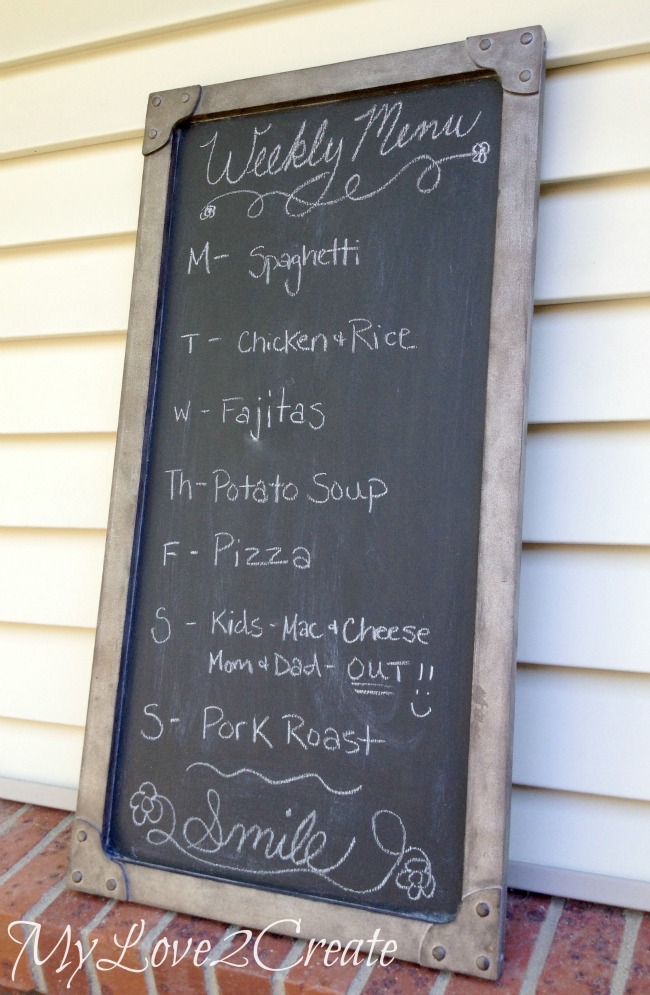 Weekly Menu
M- Spaghetti
T - Chicken & Rice
W - Fajitas
Th- Potato Soup
F - Pizza
S - Kids - Mac & Cheese
Mom & Dad - OUT!!
S - Pork Roast
Smile
MyLove2Create